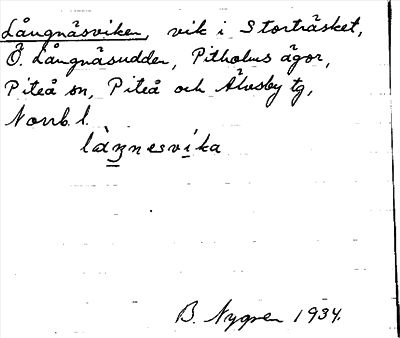 Långnäsviken, vik i Storträsket,
Ö. Långnäsudden, Pitholms ägor,
Piteå sn, Piteå och Älvsby tg,
Norrb. l.
låŋnesvika
B. Nygren 1934.